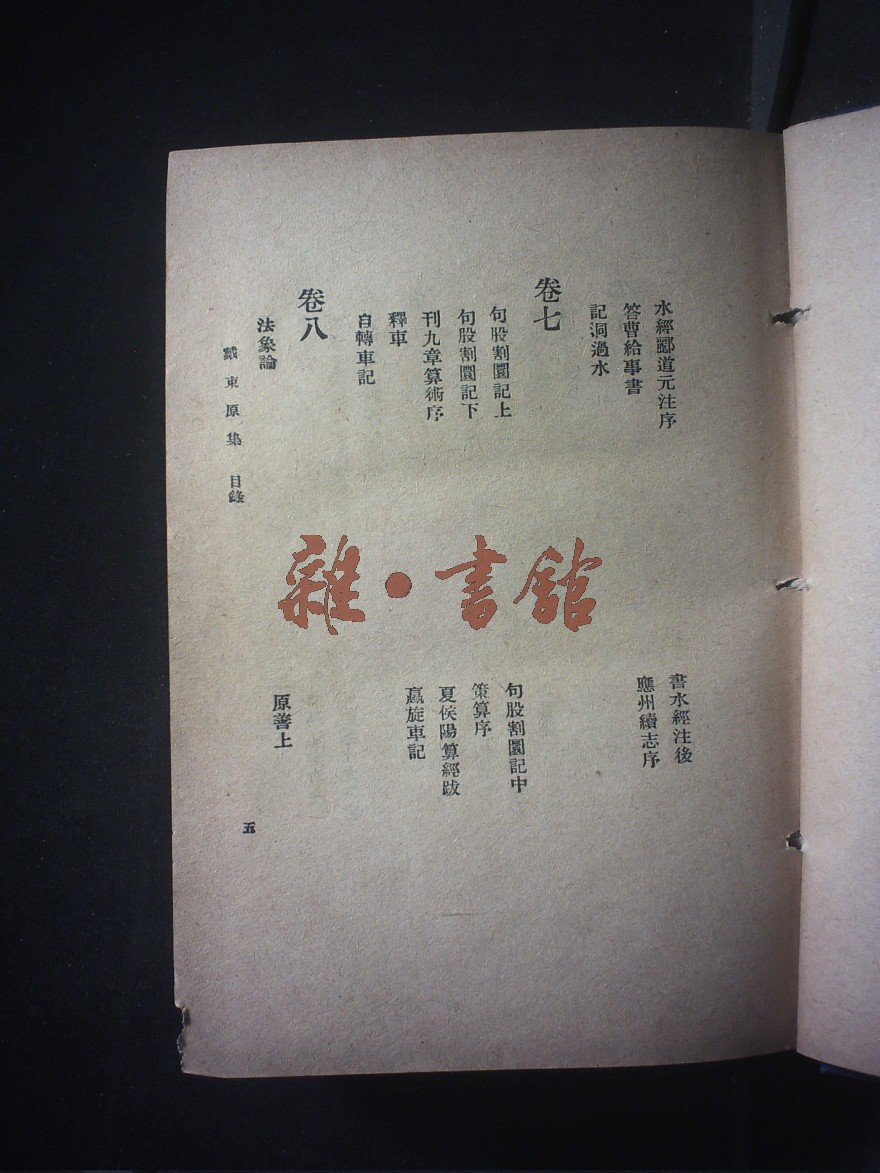 水經酈道元注序
書水經注後
答曹給事書
應州續志序
記洞過水
卷七
句股割圜記上
句股割圜記中
句股割圜記下
策算序
刊九章算術序
夏侯陽算經跋
釋車
蠃旋車記
自轉車記
卷八
法象論
原善上
戴東原集 目錄
五
雜·書館